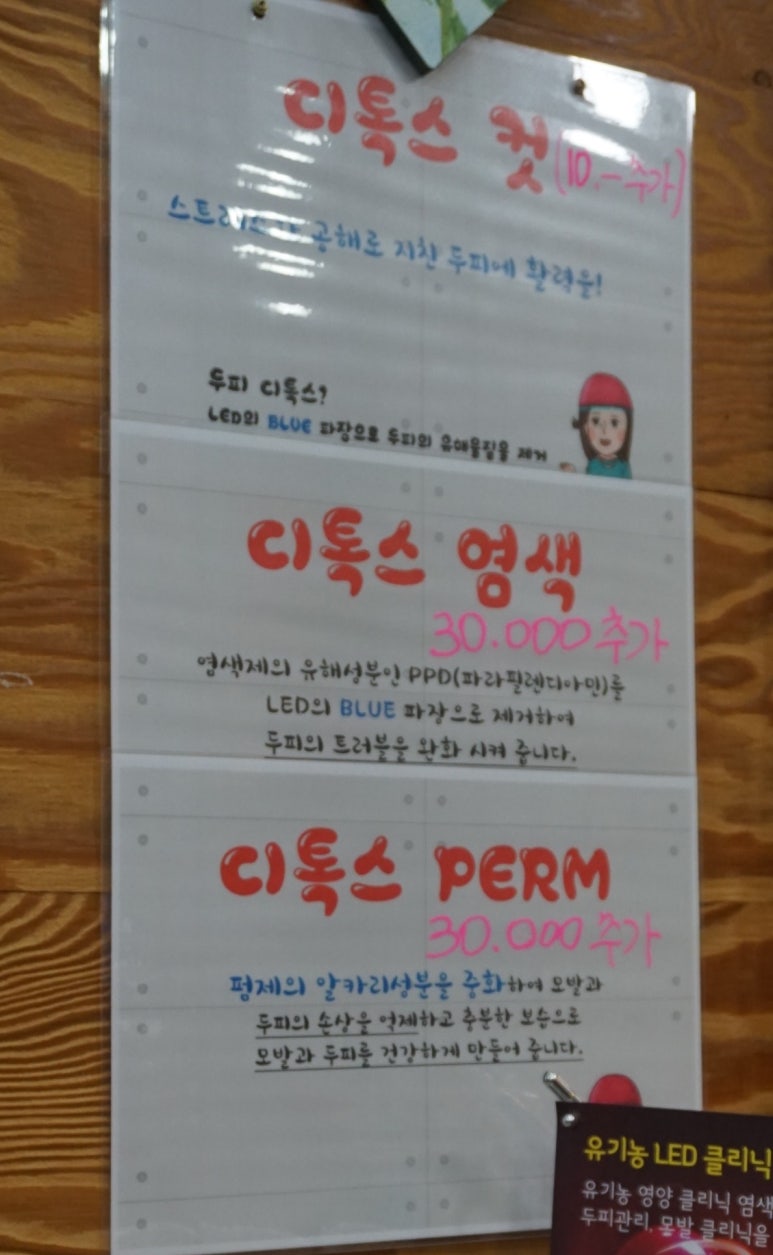 디톡스 컷 (10.- 추가)
스트레스와 공해로 지친 두피에 활력을!
두피 디톡스?
LED의 BLUE 파장으로 두피의 유해물질을 제거
디톡스 염색
30.000 추가
염색제의 유해성분인 PPD(파라필렌디아민)를
LED의 BLUE 파장으로 제거하여
두피의 트러블을 완화 시켜 줍니다.
디톡스 PERM
30.000 추가
펌제의 알카리성분을 중화하여 모발과
두피의 손상을 억제하고 충분한 보습으로
모발과 두피를 건강하게 만들어 줍니다.
유기농 LED 클리닉
유기농 영양 클리닉 염색
두피관리, 모발 클리닉을